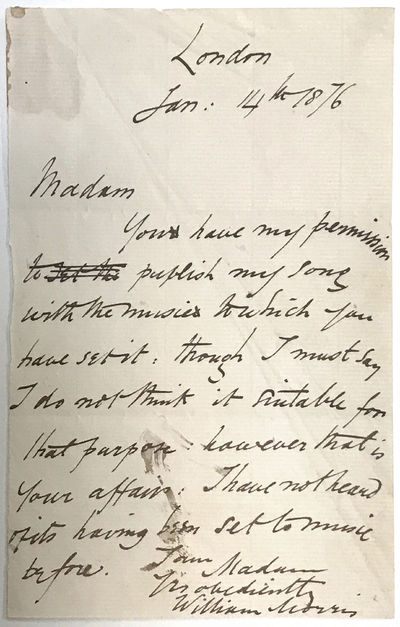 London
Jan: 14th 1876
Madam
You have my permission
to set the publish my song
with the music to which you
have set it: though I must say
I do not think it suitable for
that purpose: however that is
your affair: I have not heard
of its having been set to music
before.
I am Madam
Yrs obediently
William Morris